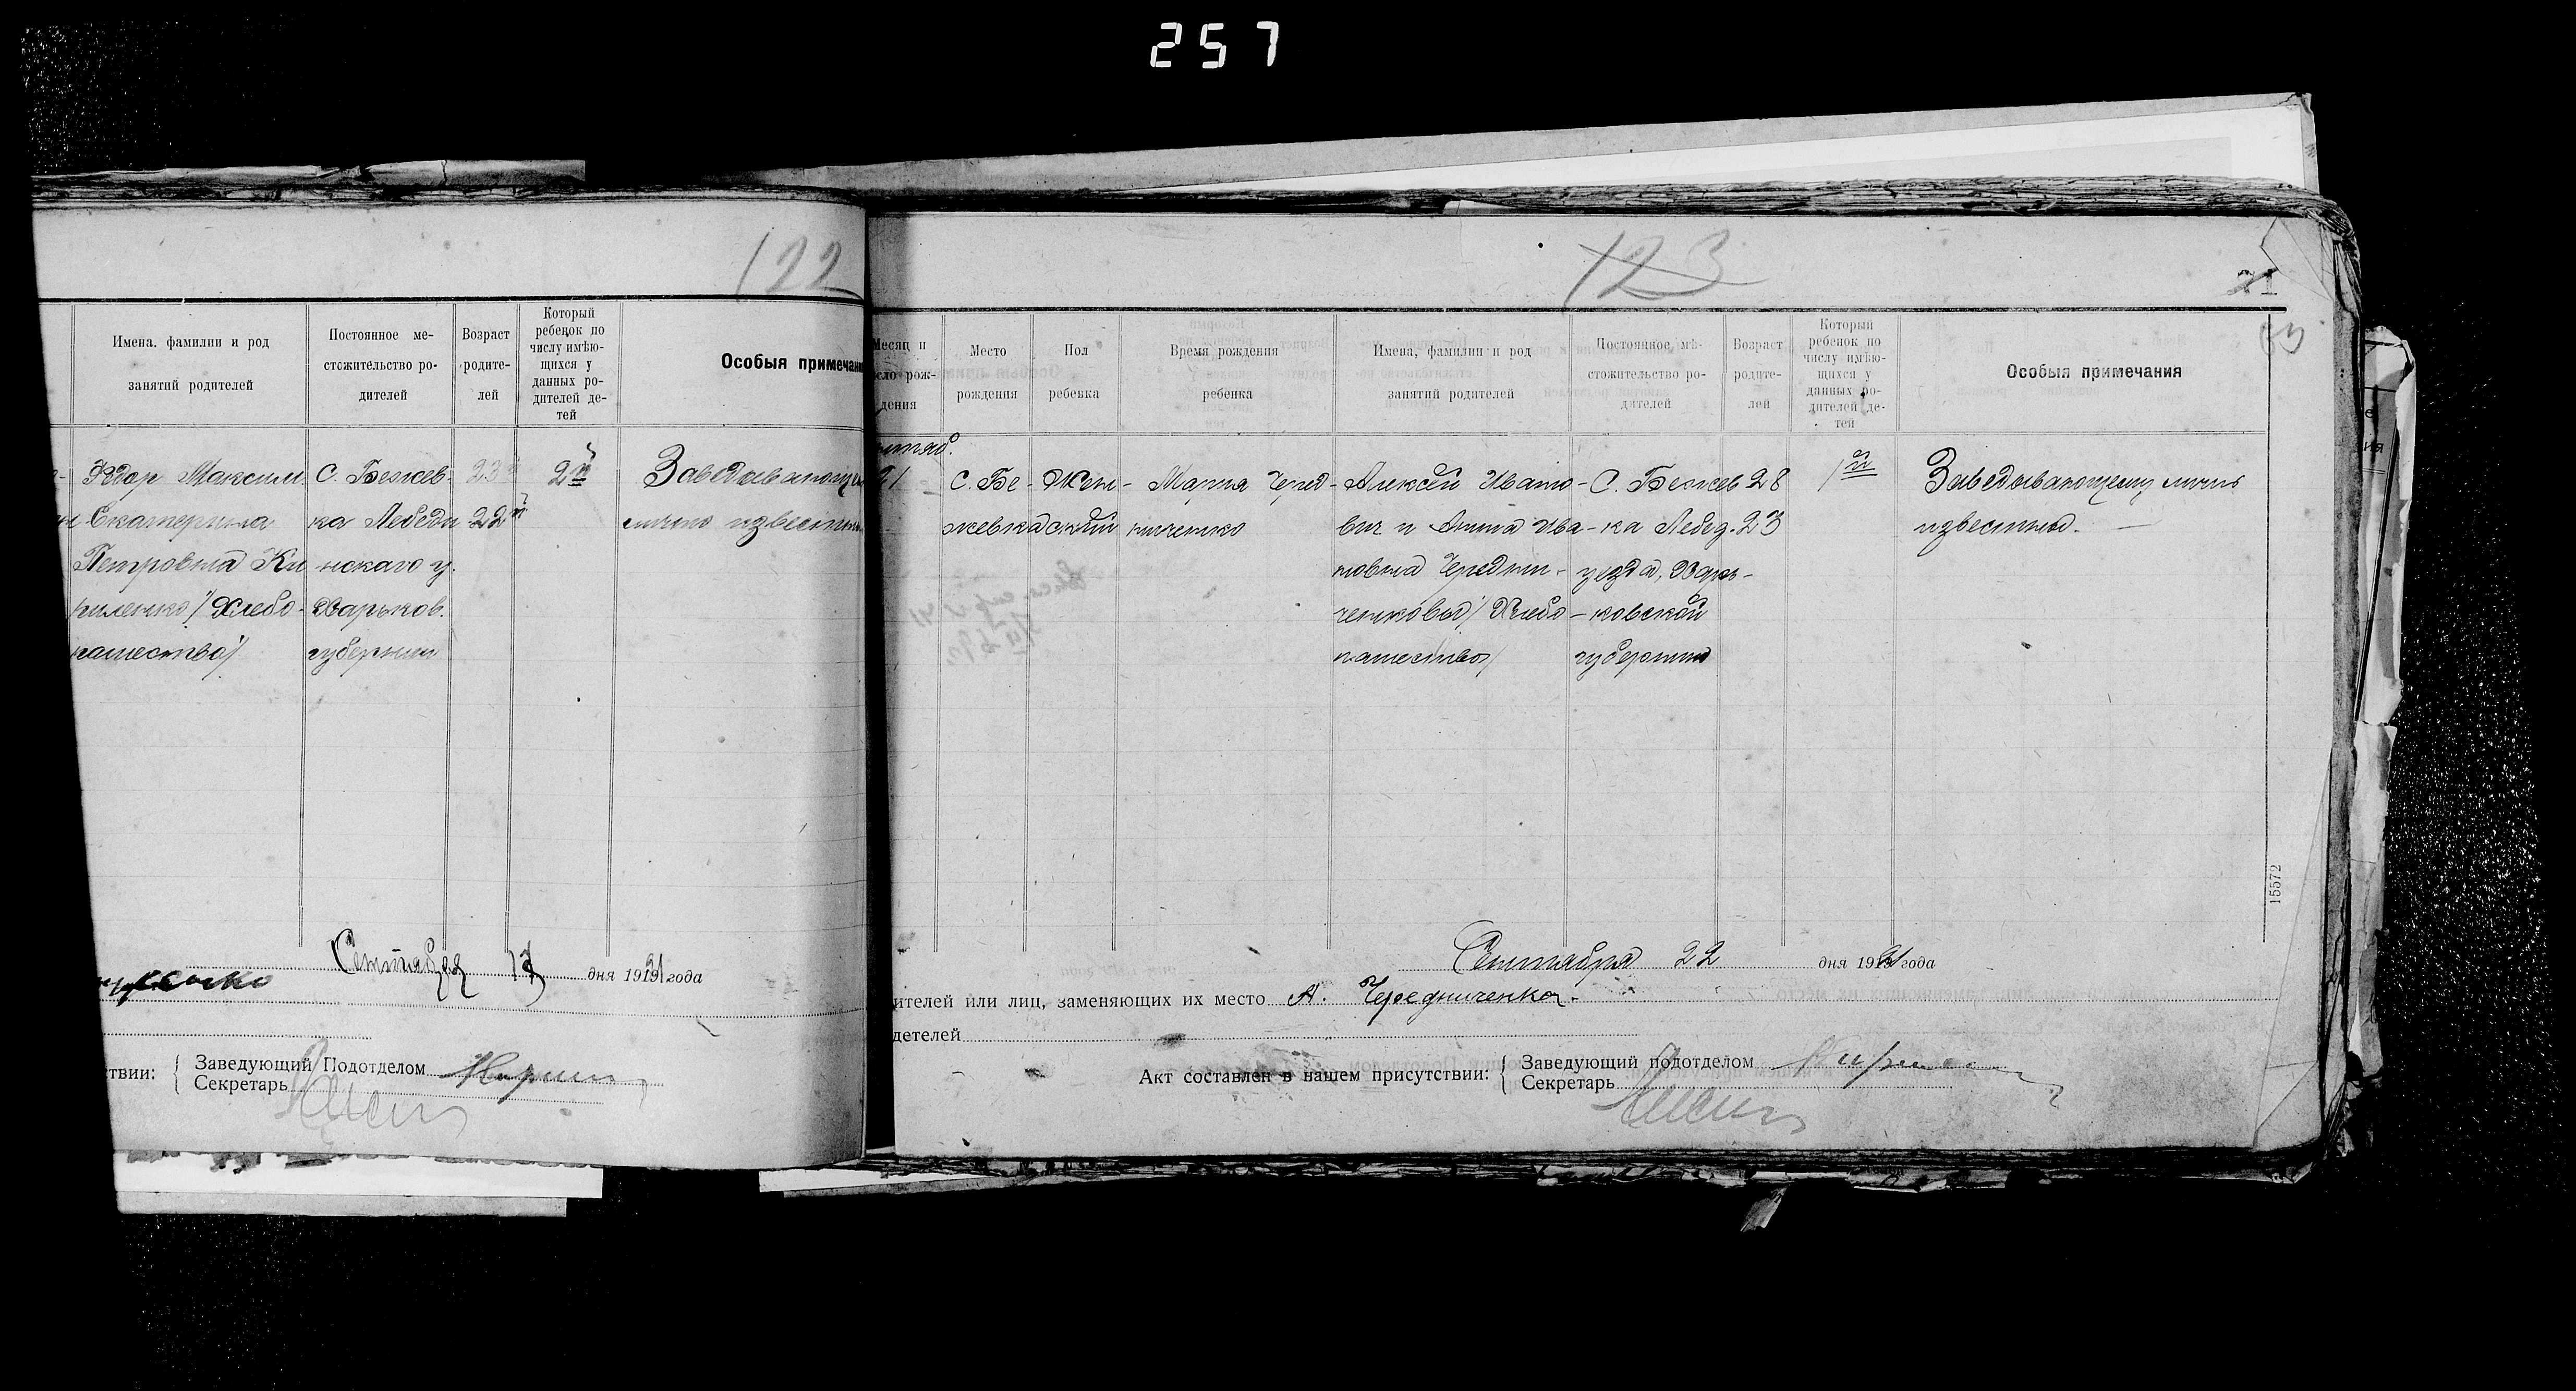 257
122
Имена, фамилии и род
занятий родителей
Постоянное ме-
стожительство ро-
дителей
Возраст
родите-
лей
Который
ребенок по
числу имѣю-
щихся у
данных ро-
дителей де-
тей
Особыя примечани
Фдор Максим
Екатерина
Петровна Ки
риленко / Хлебо-
пашество /
С. Бежев-
ка Лебеди
нскаго у.
Харьков.
губернии
23
22й
2й
Заведывающ
лично известны
Сентября 17 дня 191921 года
ствии:
Заведующий Подотделом
Секретарь
123
21
Месяц и
число рож-
дения
Место
рождения
Пол
ребенка
Время рождения
ребенка
Имена, фамилии и род
занятий родителей
Постоянное мѣ-
стожительство ро-
дителей
Возраст
родите-
лей
Который
ребенок по
числу имѣю-
щихся у
данных ро-
дителей де-
тей
Особыя примечания
21
С. Бе-
жевка
Жен-
ский
Мария Черед-
ниченко
Алексей Ивано-
вич и Анна Ива-
новна Чередни-
ченковы / Хлебо-
пашество /
С. Бежев
ка Лебед.
уезда, Харь-
ковской
губернии
28
23
1й
Заведывающему лично
известны.
15572
Сентября 22 дня 191921 года
ителей или лиц, заменяющих их место А. Чередниченко.
детелей
Акт составлен в нашем присутствии:
Заведующий подотделом
Секретарь